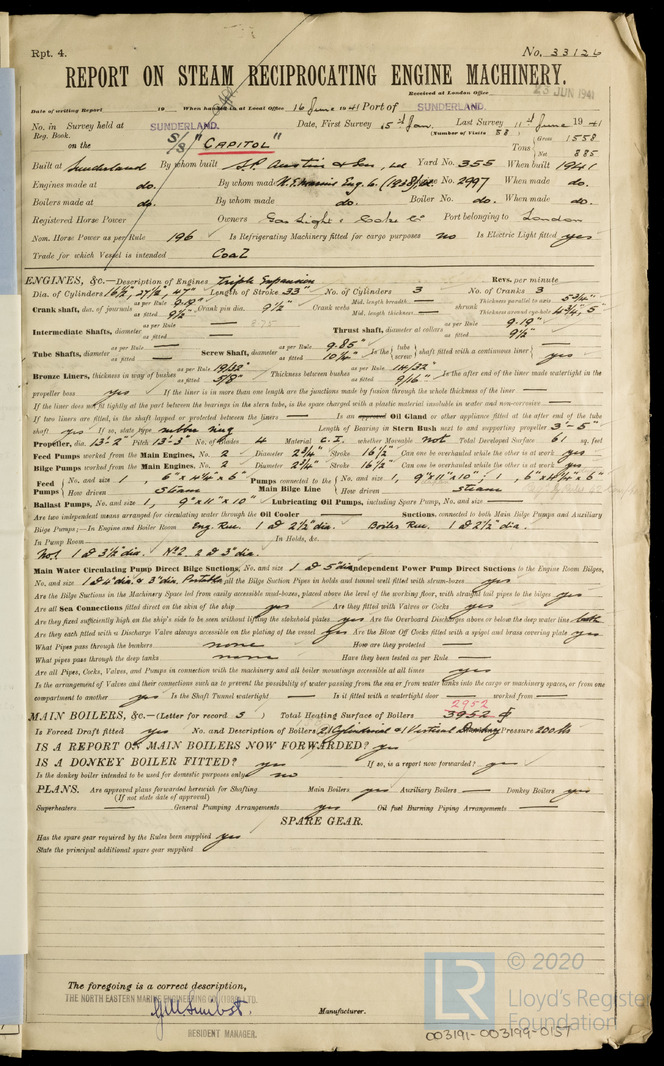 Rpt. 4.
No. 33126
REPORT ON STEAM RECIPROCATING ENGINE MACHINERY.
Received at London Office 23 JUN 1941
Date of writing Report 19 When handed in at Local Office 16 June 1941 Port of SUNDERLAND.
No. in Reg. Book. Survey held at SUNDERLAND. Date, First Survey 15th Jan. Last Survey 11th June 1941
(Number of Visits 58)
on the S/S "CAPITOL" Tons Gross 1558 Net 885
Built at Sunderland By whom built S.P. Austin & Son, Ltd Yard No. 355 When built 1941
Engines made at do. By whom made N.E. Marine Eng. Co. (1938) Ltd. Engine No. 2997 When made do.
Boilers made at do. By whom made do. Boiler No. do. When made do.
Registered Horse Power Owners Gas Light & Coke Co Port belonging to London
Nom. Horse Power as per Rule 196 Is Refrigerating Machinery fitted for cargo purposes no Is Electric Light fitted yes
Trade for which Vessel is intended Coal
ENGINES, &c.—Description of Engines Triple Expansion Revs. per minute
Dia. of Cylinders 16½", 27½", 47" Length of Stroke 33" No. of Cylinders 3 No. of Cranks 3
Crank shaft, dia. of journals as per Rule 9.19" as fitted 9½" Crank pin dia. 9½" Crank webs Mid. length breadth — Mid. length thickness — shrunk Thickness parallel to axis 5¾" Thickness around eye-hole 4¾", 5"
Intermediate Shafts, diameter as per Rule — as fitted — Thrust shaft, diameter at collars as per Rule 9.19" as fitted 9½"
Tube Shafts, diameter as per Rule — as fitted — Screw Shaft, diameter as per Rule 9.85" as fitted Is the tube screw shaft fitted with a continuous liner yes
Bronze Liners, thickness in way of bushes as per Rule 19/32" as fitted 5/8" Thickness between bushes as per Rule 14/32" as fitted 9/16" Is the after end of the liner made watertight in the
propeller boss yes If the liner is in more than one length are the junctions made by fusion through the whole thickness of the liner —
If the liner does not fit tightly at the part between the bearings in the stern tube, is the space charged with a plastic material insoluble in water and non-corrosive —
If two liners are fitted, is the shaft lapped or protected between the liners — Is an approved Oil Gland or other appliance fitted at the after end of the tube
shaft yes If so, state type rubber ring Length of Bearing in Stern Bush next to and supporting propeller 3'-5"
Propeller, dia. 13'-2" Pitch 13'-3" No. of Blades 4 Material C.I. whether Moveable Not Total Developed Surface 61 sq. feet
Feed Pumps worked from the Main Engines, No. 2 Diameter 2¾" Stroke 16½" Can one be overhauled while the other is at work yes
Bilge Pumps worked from the Main Engines, No. 2 Diameter 2¾" Stroke 16½" Can one be overhauled while the other is at work yes
Feed Pumps No. and size 1, 6" x 4¼" x 6" How driven Steam Pumps connected to the Main Bilge Line No. and size 1, 9" x 11" x 10"; 1, 6" x 4¼" x 6" How driven steam
Ballast Pumps, No. and size 1, 9" x 11" x 10" Lubricating Oil Pumps, including Spare Pump, No. and size —
Are two independent means arranged for circulating water through the Oil Cooler — Suctions, connected to both Main Bilge Pumps and Auxiliary
Bilge Pumps;—In Engine and Boiler Room Eng. Rm. 1 @ 2½" dia. Boiler Rm. 1 @ 2½" dia.
In Pump Room — In Holds, &c.
No1. 1 @ 3½" dia. No2. 2 @ 3" dia.
Main Water Circulating Pump Direct Bilge Suctions, No. and size 1 @ 5" dia Independent Power Pump Direct Suctions to the Engine Room Bilges,
No. and size 1 @ 4" dia. & 3" dia. Portable all the Bilge Suction Pipes in holds and tunnel well fitted with strum-boxes yes
Are the Bilge Suctions in the Machinery Space led from easily accessible mud-boxes, placed above the level of the working floor, with straight tail pipes to the bilges yes
Are all Sea Connections fitted direct on the skin of the ship yes Are they fitted with Valves or Cocks yes
Are they fixed sufficiently high on the ship's side to be seen without lifting the stokehold plates yes Are the Overboard Discharges above or below the deep water line both
Are they each fitted with a Discharge Valve always accessible on the plating of the vessel yes Are the Blow Off Cocks fitted with a spigot and brass covering plate yes
What Pipes pass through the bunkers none How are they protected —
What pipes pass through the deep tanks none Have they been tested as per Rule —
Are all Pipes, Cocks, Valves, and Pumps in connection with the machinery and all boiler mountings accessible at all times yes
Is the arrangement of Valves and their connections such as to prevent the possibility of water passing from the sea or from water tanks into the cargo or machinery spaces, or from one
compartment to another yes Is the Shaft Tunnel watertight — Is it fitted with a watertight door — worked from —
2952
MAIN BOILERS, &c.—(Letter for record S) Total Heating Surface of Boilers 3952
Is Forced Draft fitted yes No. and Description of Boilers 2 Cylindrical & 1 Vertical Donkey Pressure 200 lbs
IS A REPORT ON MAIN BOILERS NOW FORWARDED? yes
IS A DONKEY BOILER FITTED? yes If so, is a report now forwarded? yes
Is the donkey boiler intended to be used for domestic purposes only no
PLANS. Are approved plans forwarded herewith for Shafting Main Boilers yes Auxiliary Boilers — Donkey Boilers yes
(If not state date of approval)
Superheaters — General Pumping Arrangements yes Oil fuel Burning Piping Arrangements —
SPARE GEAR.
Has the spare gear required by the Rules been supplied yes
State the principal additional spare gear supplied
The foregoing is a correct description,
THE NORTH EASTERN MARINE ENGINEERING CO. (1938) LTD.
Manufacturer.
RESIDENT MANAGER.
LR © 2020
Lloyd's Register
Foundation
003191-003199-0157